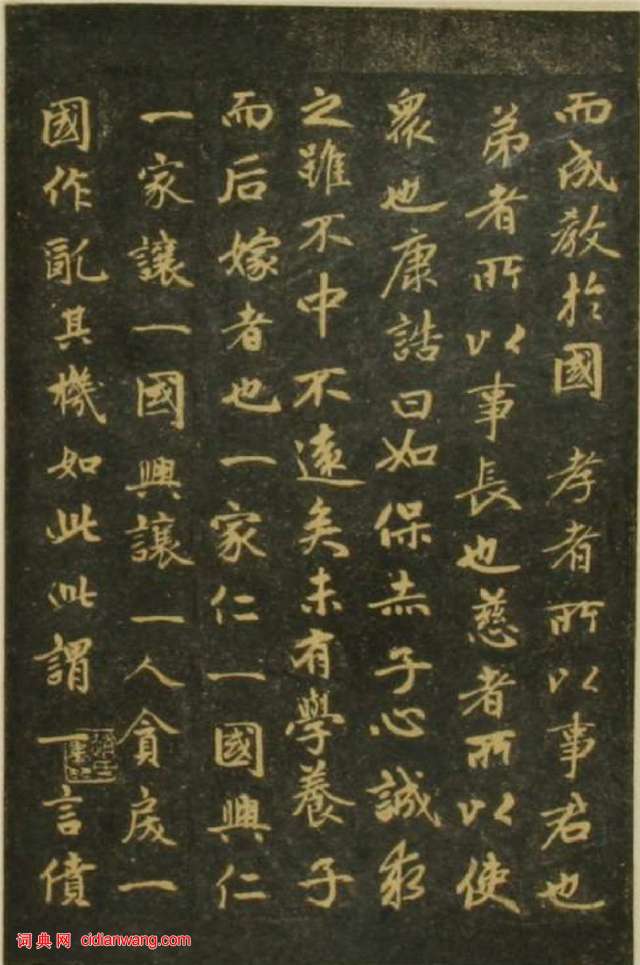 而成教於國 孝者所以事君也
弟者所以事長也慈者所以使
衆也康誥曰如保赤子心誠求
之雖不中不遠矣未有學養子
而后嫁者也一家仁一國興仁
一家讓一國興讓一人貪戾一
國作亂其機如此此謂一言僨
词典网 cidianwang.com